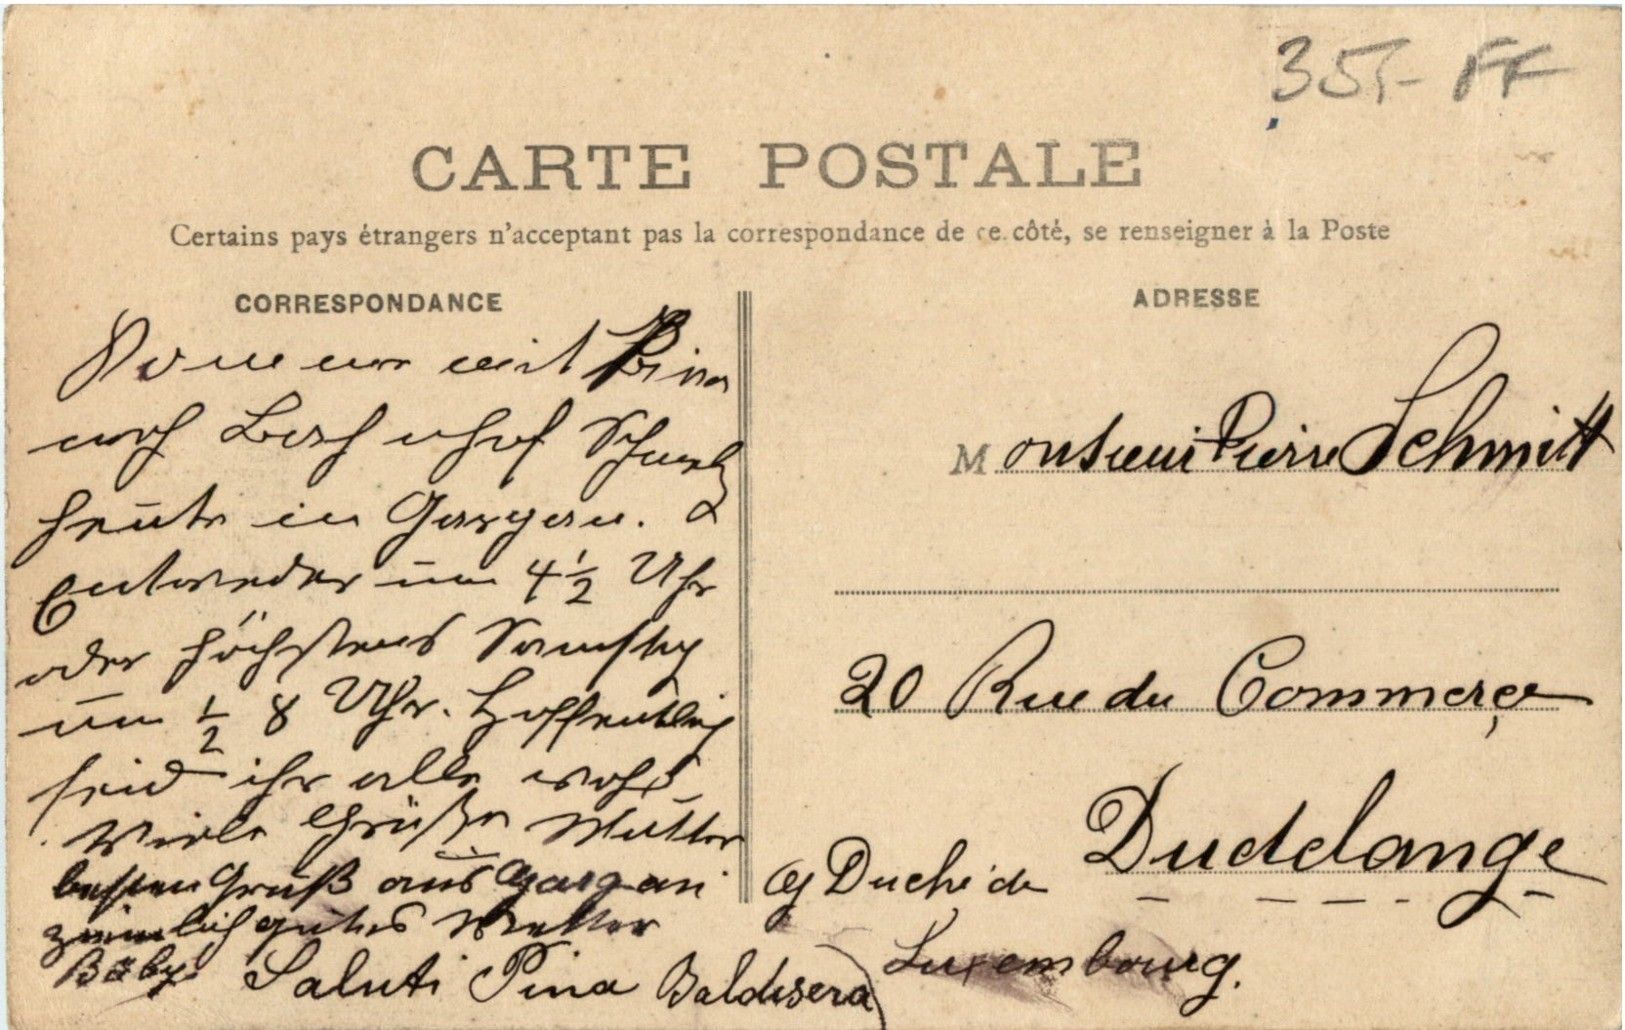 35,- FF
CARTE POSTALE
Certains pays étrangers n'acceptant pas la correspondance de ce côté, se renseigner à la Poste
CORRESPONDANCE
mit Pina
noch
heute in Gargan.
Entweder um 4 1/2 Uhr
oder höchstens Samstag
um 1/2 8 Uhr. Hoffentlich
seid ihr alle wohl
Viele Grüße Mutter
besten Gruß aus Gargan
ziemlich gutes Wetter
Saluti Pina Baldisera
ADRESSE
Monsieur Pierre Schmitt
20 Rue du Commerçe
Dudelange
Duché de
Luxembourg.